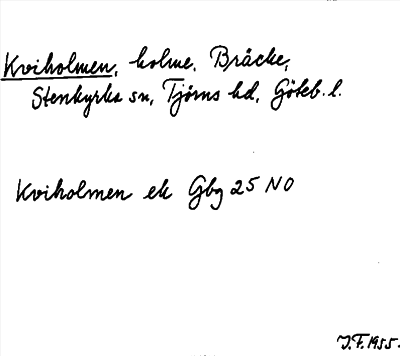 Kviholmen, holme, Bräcke,
Stenkyrka sn, Tjörns hd, Göteb. l.
Kviholmen ek Gbg 25 NO
J.F. 1955.